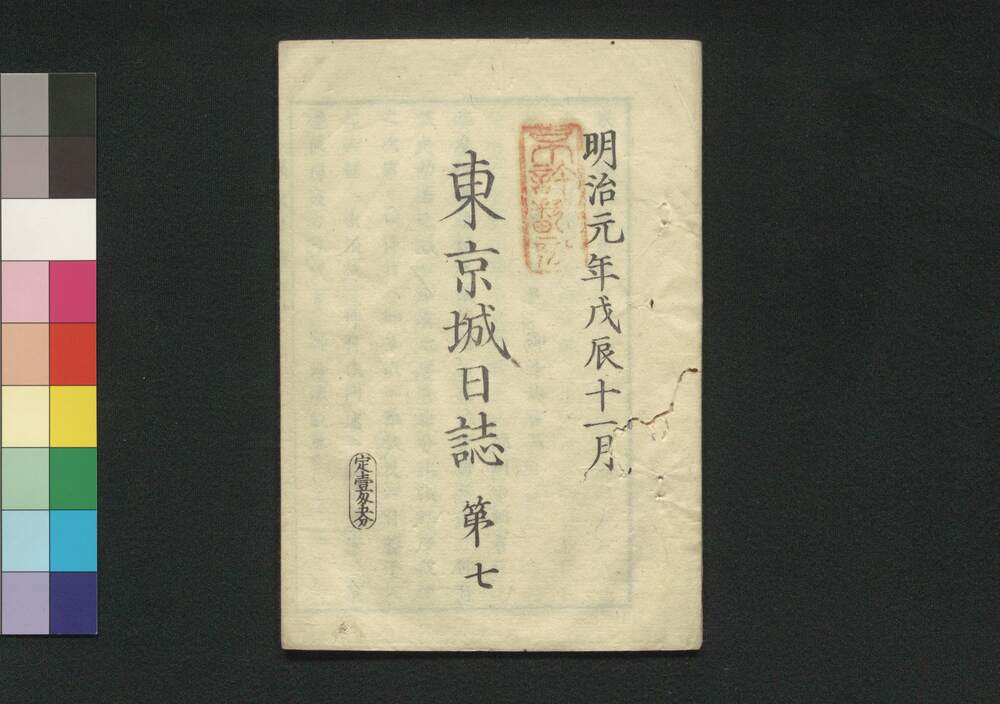 明治元年戊辰十一月
東京城日誌 第七
定壹匁五分